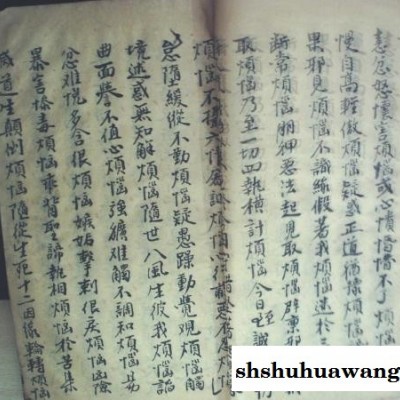 恚忿怒懷害煩惱或心憒惛懵不了煩惱
慢自高輕傲煩惱疑惑正道猶豫煩惱
果邪見煩惱不識緣假著我煩惱迷於三
斷常煩惱朋狎惡法起見取煩惱僻稟邪
取煩惱乃至一切四執橫計煩惱今日至誠
煩惱不攝六情
怠墮緩縱不勤煩惱疑愚躁動覺觀煩惱觸
境迷惑無知解煩惱隨世八風生彼我煩惱諂
曲面譽不直心煩惱強獷難觸不調和煩惱易
忿難悅多含恨煩惱嫉妬擊刺佷戾煩惱凶險
暴害慘毒煩惱乖背聖諦執相煩惱於苦集
滅道生顛倒煩惱隨從生死十二因緣輪轉煩惱
shshuhuawang